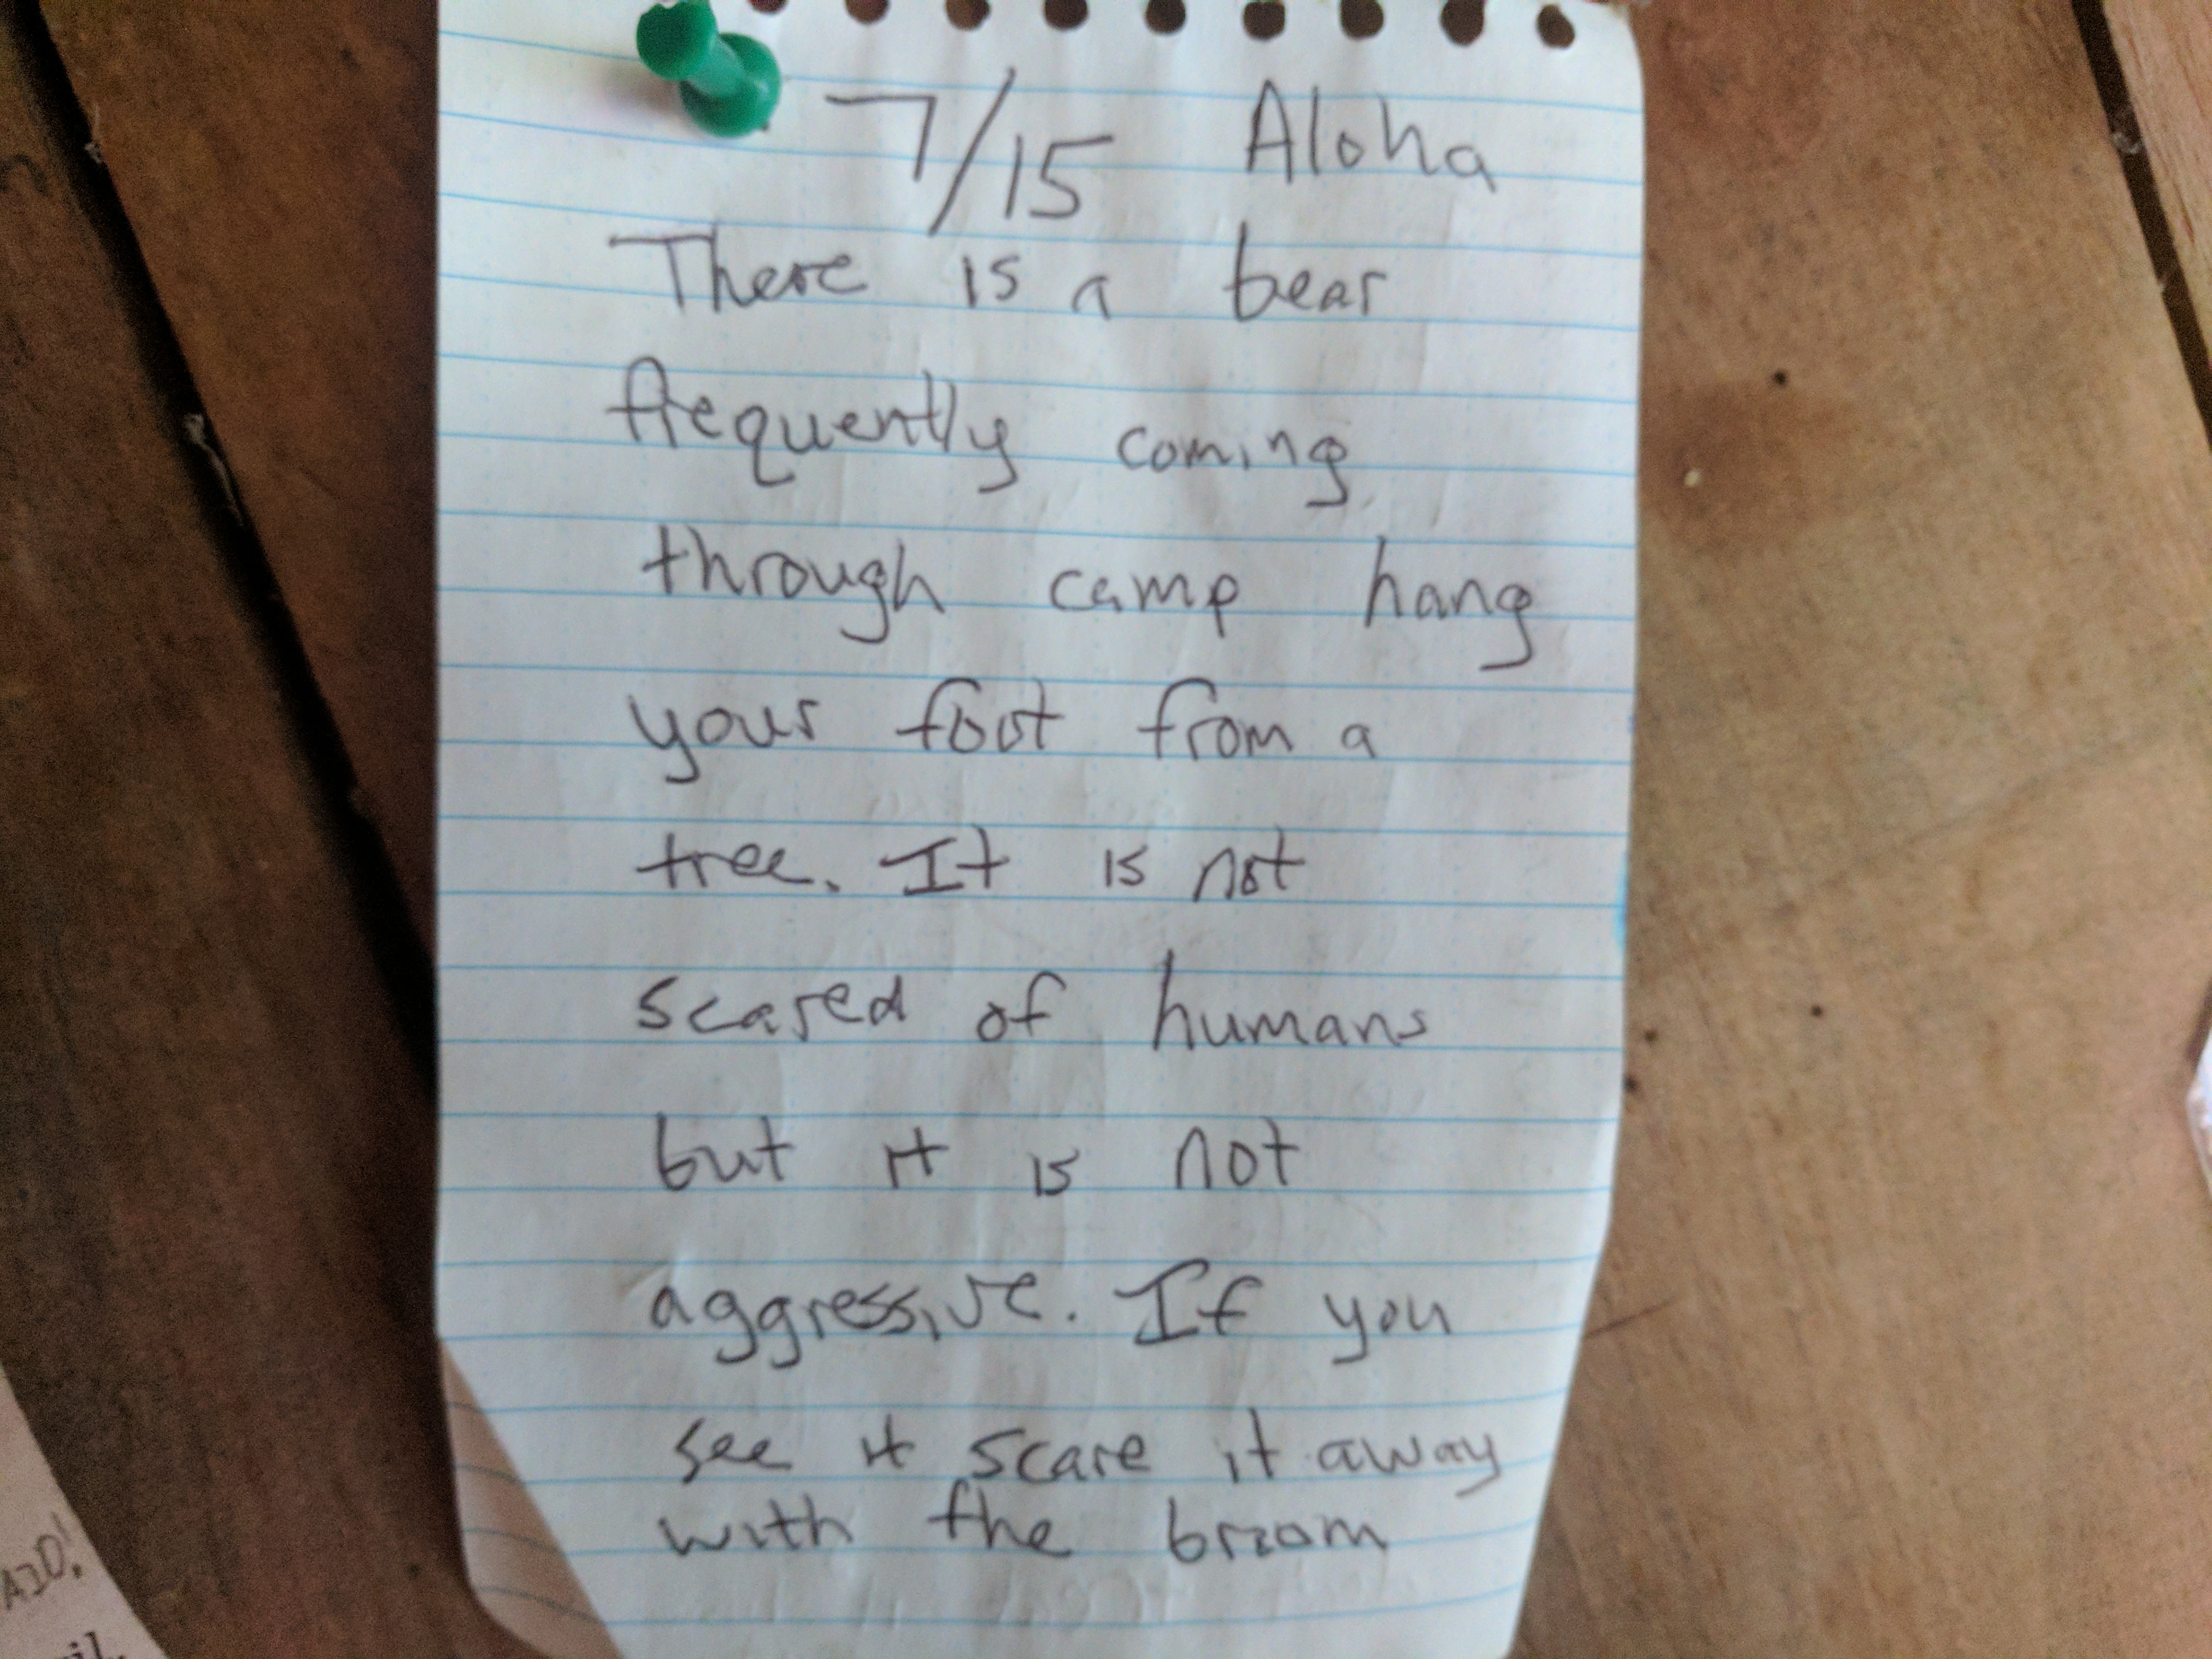 7/15 Aloha
There is a bear
frequently coming
through camp hang
your foot from a
tree. It is not
scared of humans
but it is not
aggressive. If you
see it scare it away
with the broom
AID!